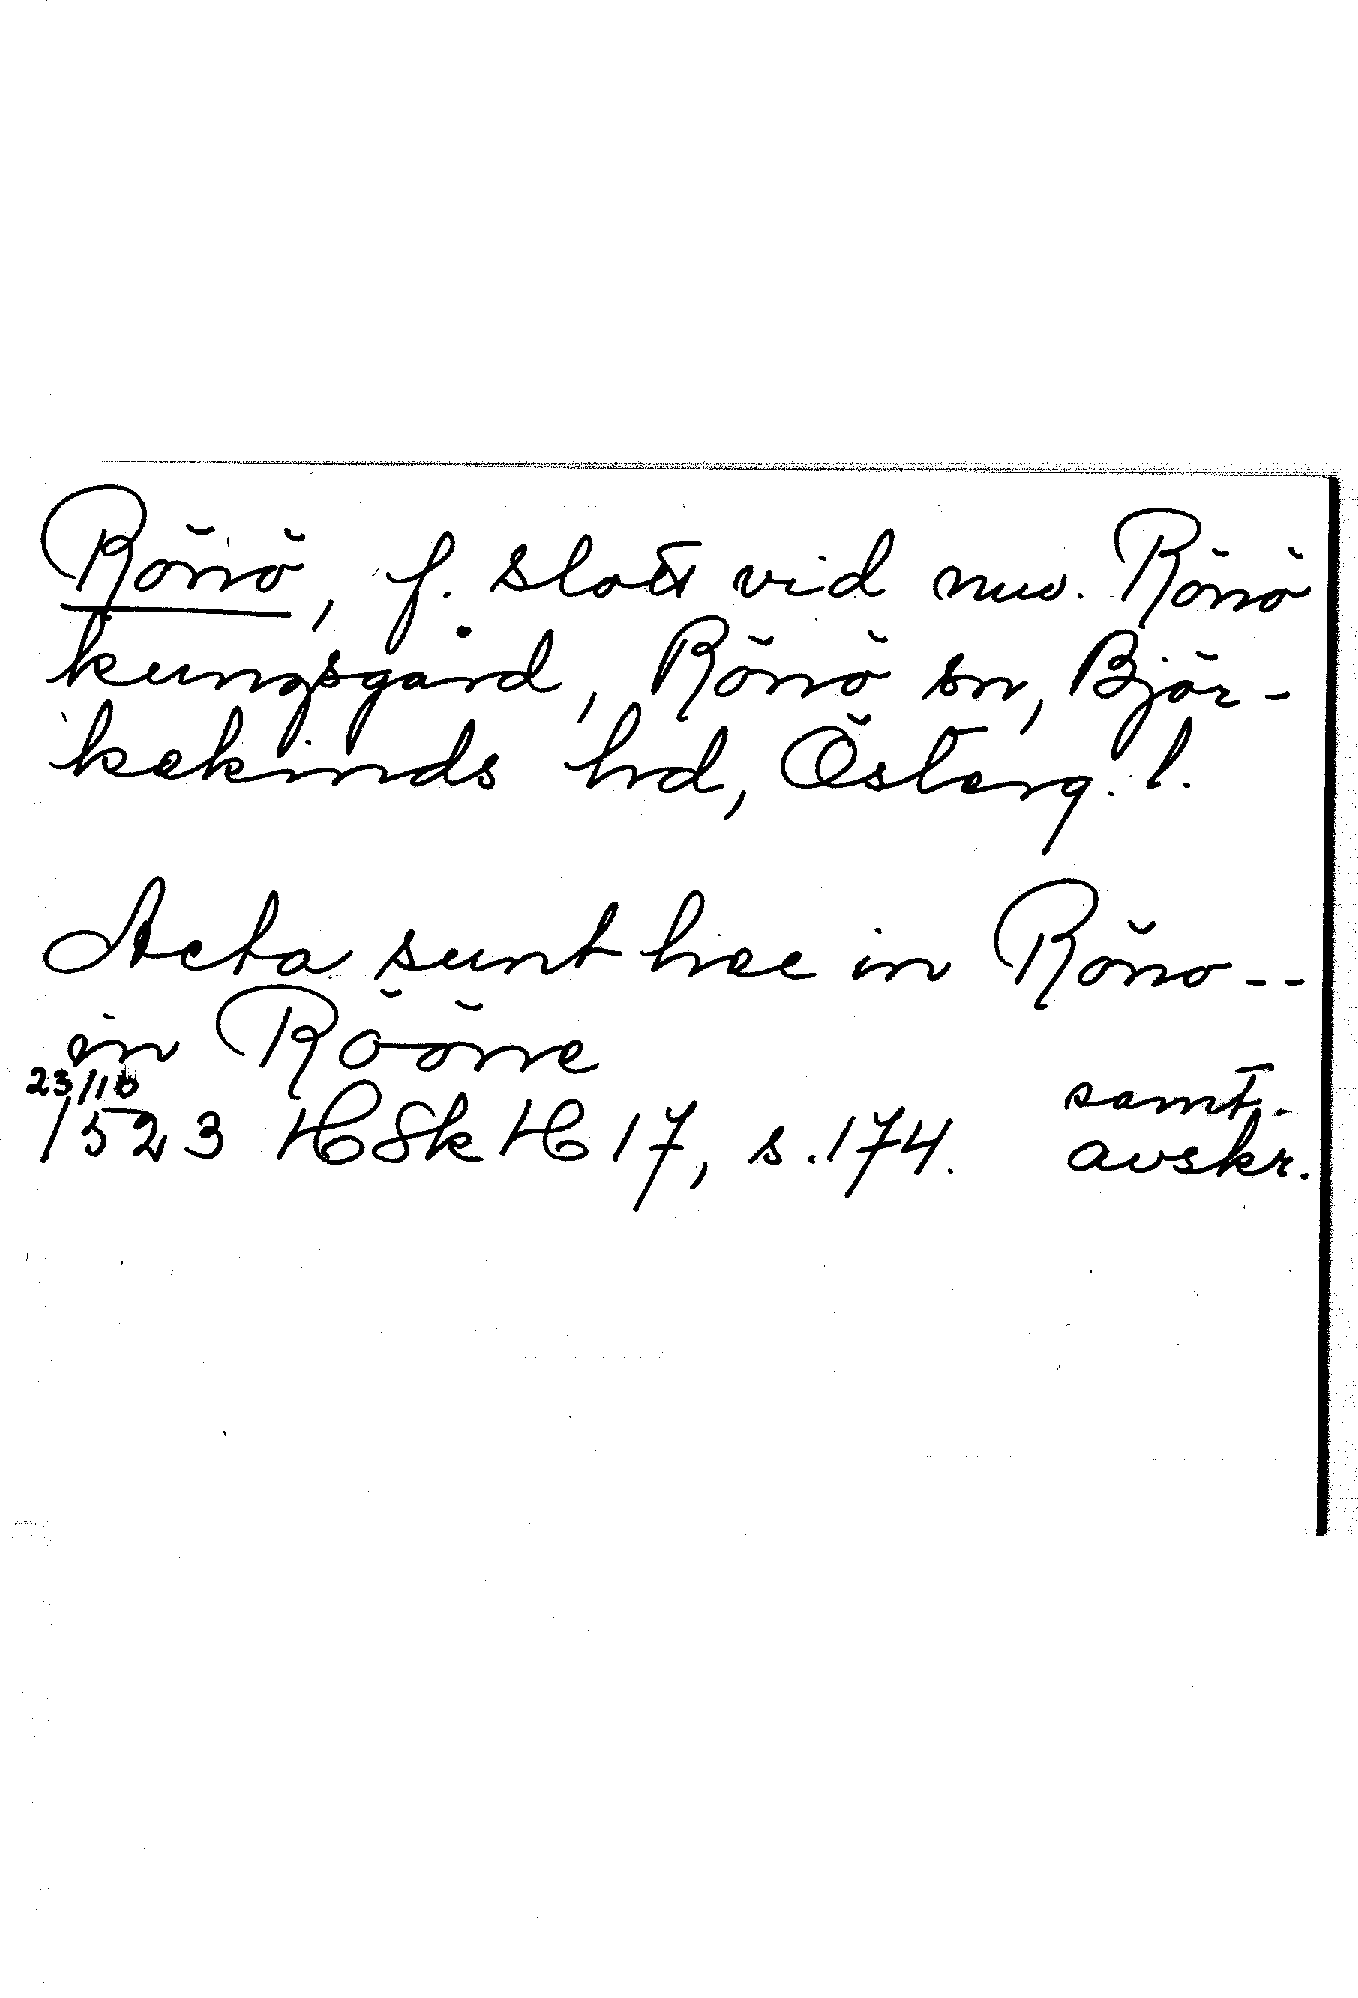 Rönö, f. slott vid nuv. Rönö
kungsgård, Rönö sn, Björ-
kekinds hd, Österg. l.
Acta sunt hec in Röno --
in Röőne
23/10
1523 HSkH 17, s. 174.
samt.
avskr.